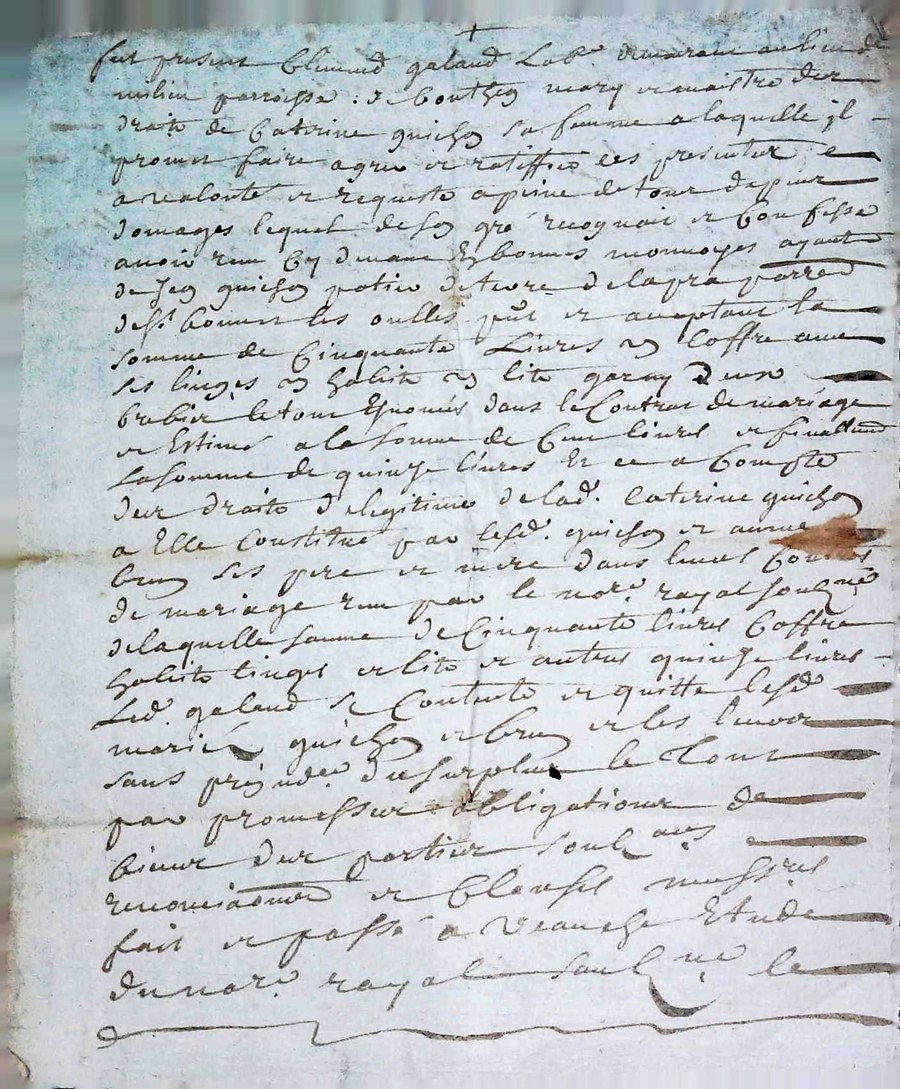 fut present Climend galand Lab.r demeurant au lieu de
milieu parroisse de boutheon mary et maistre des
droits de Caterine guichon sa femme a laquelle jl
promet faire agreer et ratiffier ces presentes e
a vealonté et requeste a peine de tous despens
domages lequel de son gré recognait et Confesse
avoir reçu Cy devant En bonnes monnoyes ayant
de Jean guichon potier de terre de la pra parr.e
de S.t bonnet les oulles pñt et acceptant la
somme de Cinquante Livres un Coffre avec
ses linges un habit un lit garny deux
brebis, le tout Enoncés dans le Contrat de mariage
et Estimé a la somme de Cent livres et finallement
La somme de quinze livres Et ce a Compte
des droits de legitime de lad. Caterine guichon
a Elle Constitué par lesd. guichon et
brun ses pere et mere dans leurs
de mariage reçu par le no.re royal soubz.né
de laquelle somme de Cinquante livres Coffre
habits linges et lit et autres quinze livres
Led. galand se Contente et quitte lesd.
mariés guichon et brun et les
sans prejudice du surplus le Tout
par promesses obligations de
biens des parties soubz
renonciaōns et Clauses
fait et passé a Veauche Etude
du no.re royal soubz.né le